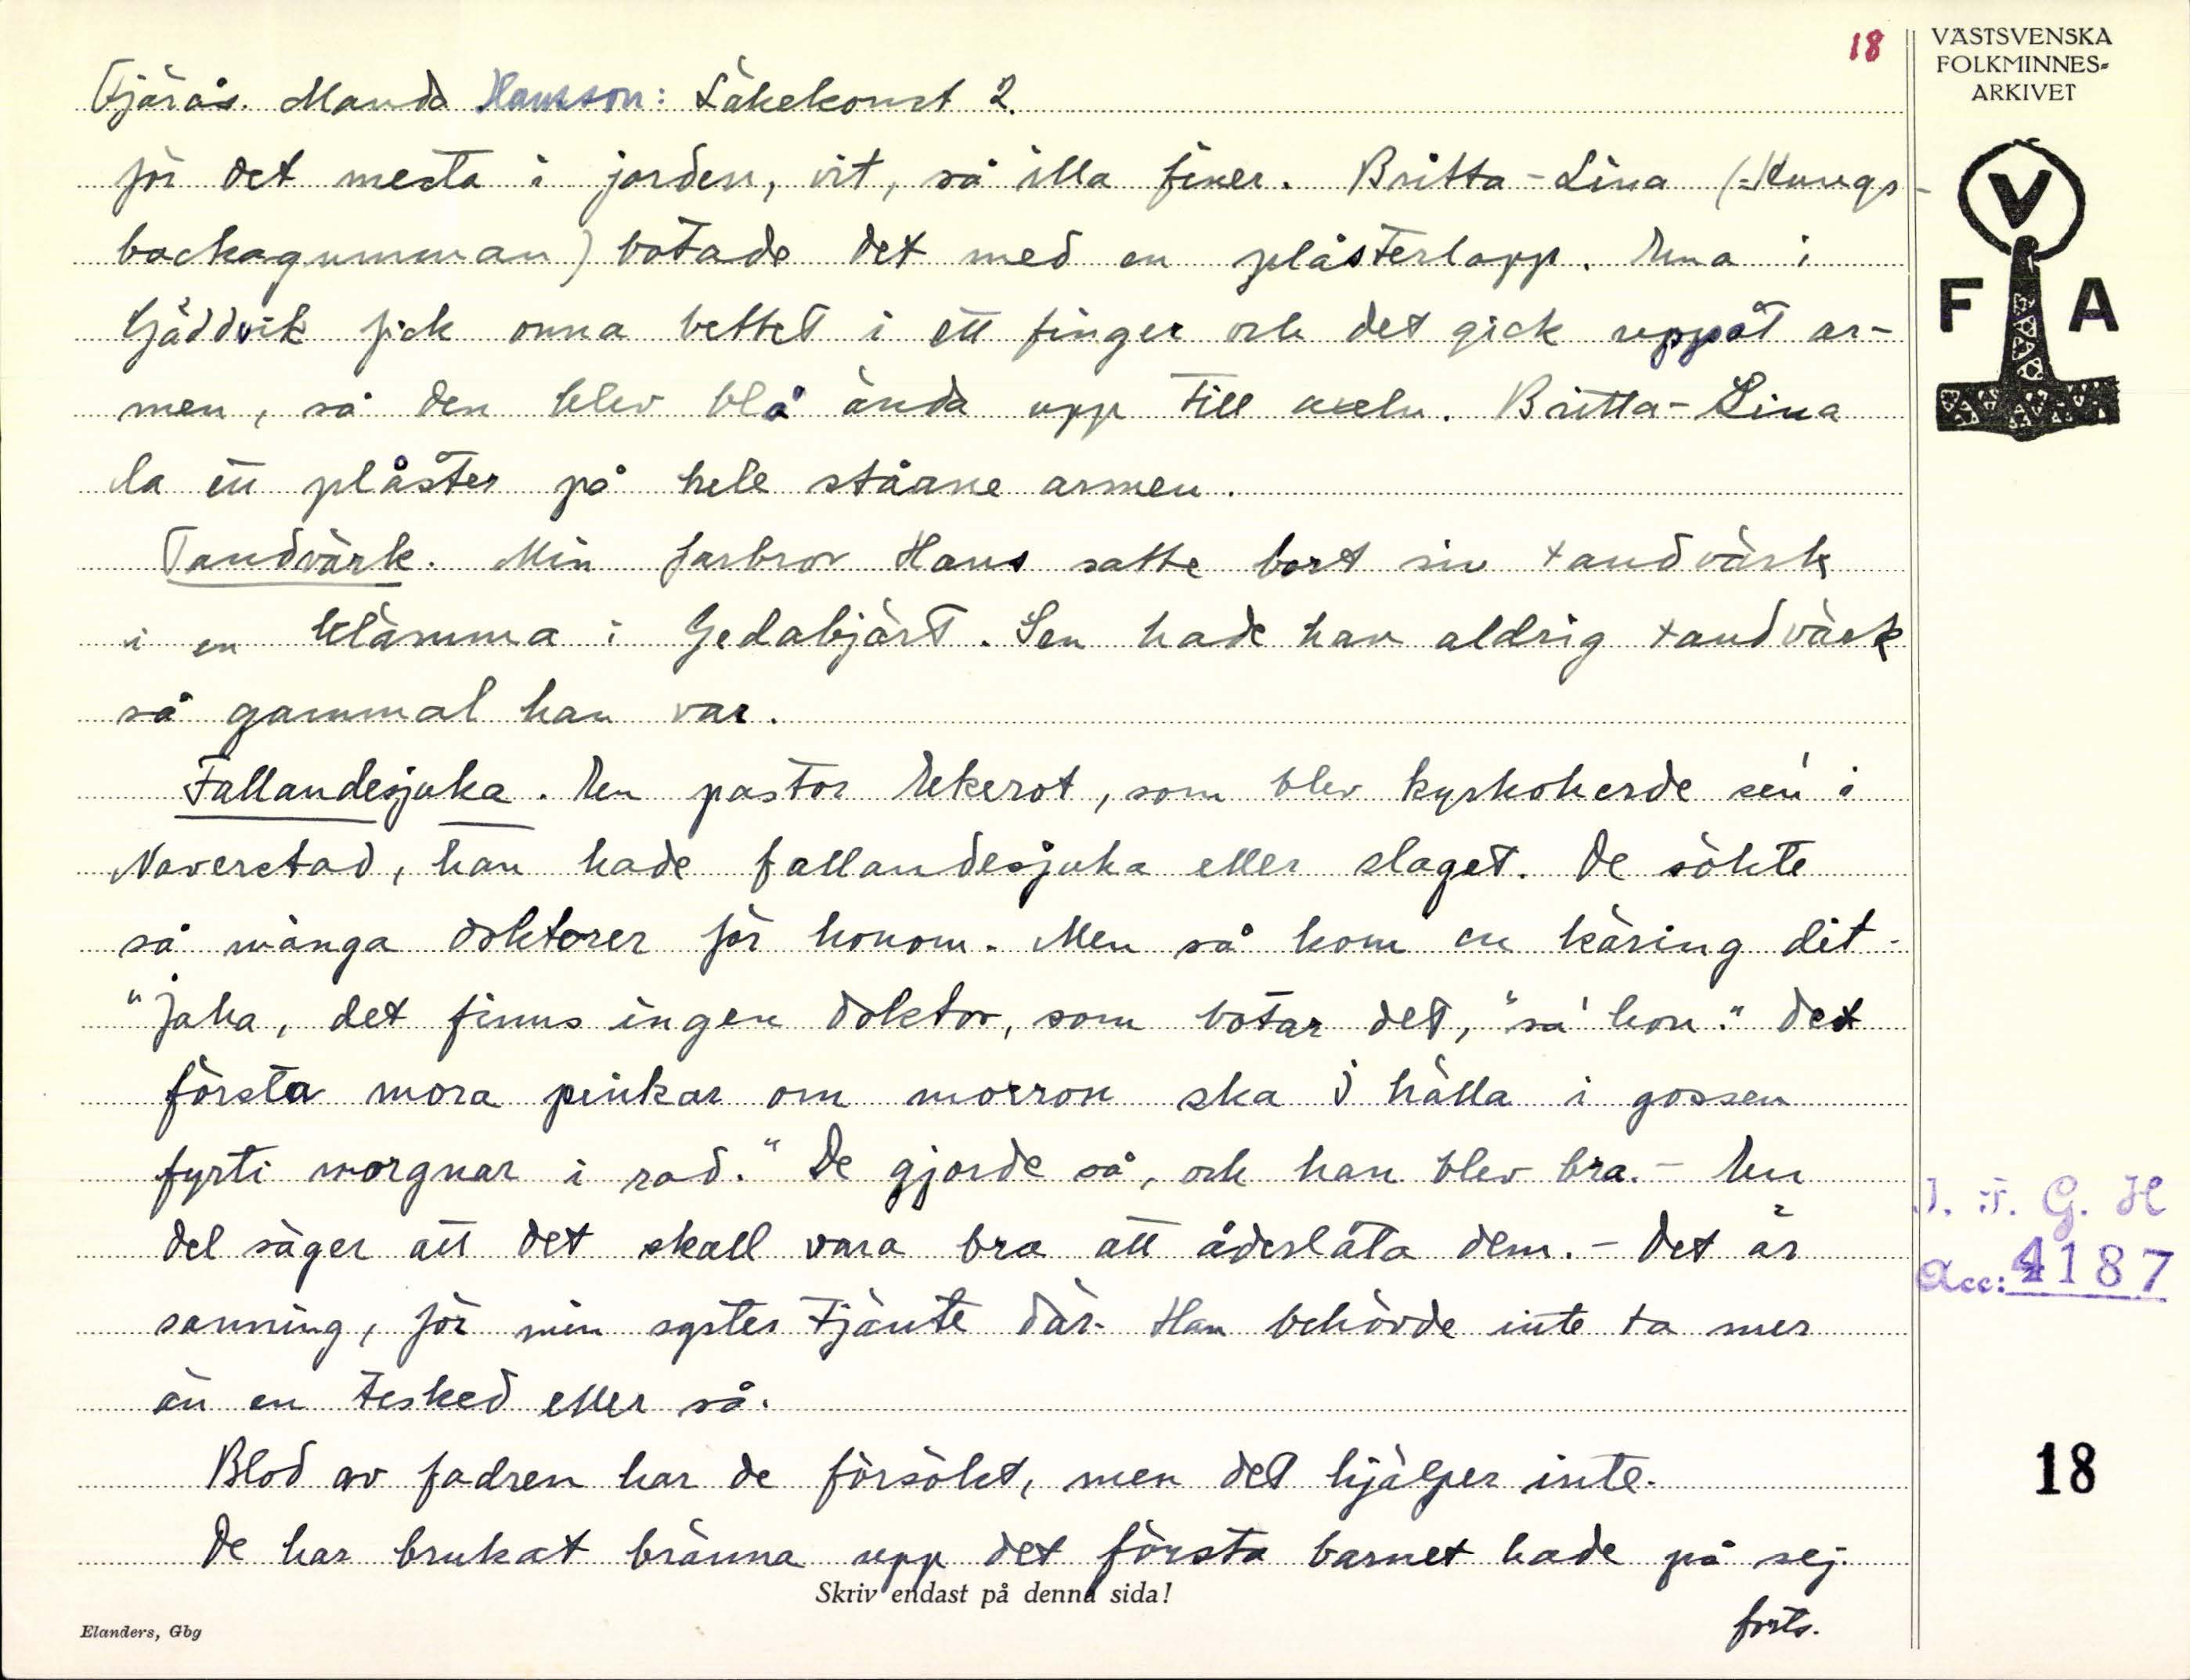 18
VÄSTSVENSKA
FOLKMINNES-
ARKIVET
Fjärås. Manda Hansson: Läkekonst 2.
för det mesta i jorden, vit, så illa finer. Britta-Lina (=Kungs-
backagumman) botade det med en plåsterlapp. Una i
Gäddvik fick onna bettet i ett finger och det gick uppåt ar-
men, så den blev blå ända upp till axeln. Britta-Lina
la ett plåster på hele ståane armen.
Tandvärk. Min farbror Hans satte bort sin tandvärk
i en klämma i Gedabjärt. Sen hade han aldrig tandvärk
så gammal han var.
Fallandesjuka. En pastor Ekerot, som blev kyrkoherde sen i
Naverstad, han hade fallandesjuka eller slaget. De sökte
så många doktorer för honom. Men så kom en käring dit.
"Jaha, det finns ingen doktor, som botar det," sa' hon. "Det
första mora pinkar om morron ska I hälla i gossen
fyrti morgnar i rad." De gjorde så, och han blev bra. – En
del säger att det skall vara bra att åderlåta dem. – Det är
sanning, för min syster tjänte där. Han behövde inte ta mer
än en tesked eller så.
Blod av fadren har de försökt, men det hjälper inte.
De har brukat bränna upp det första barnet hade på sej.
forts.
V
F A
I. F. G. H
Acc: 4187
18
Skriv endast på denna sida!
Elanders, Gbg